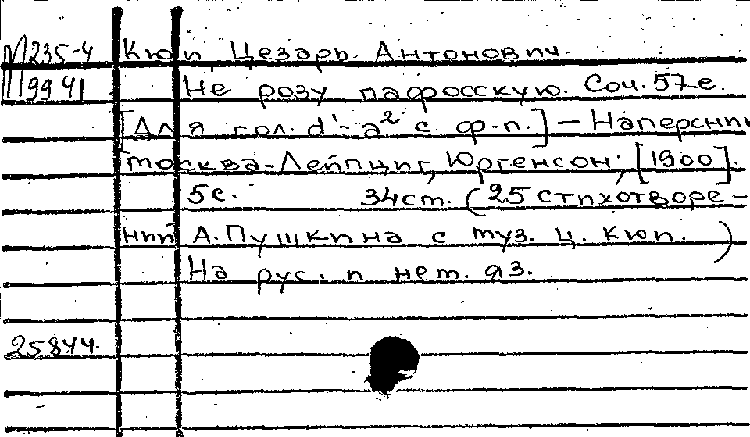 М235-4 Кюи Цезарь Антонович.
М99 41 Не розу пафосскую. Соч. 57 е.
[Для гол. d'-a² с ф-п.] - Наперсник
Москва-Лейпциг, Юргенсон, [1900].
5с. 34 ст. (25 стихотворе-
ний А. Пушкина с муз. Ц. Кюи.)
На рус. и нем. яз.
25844.